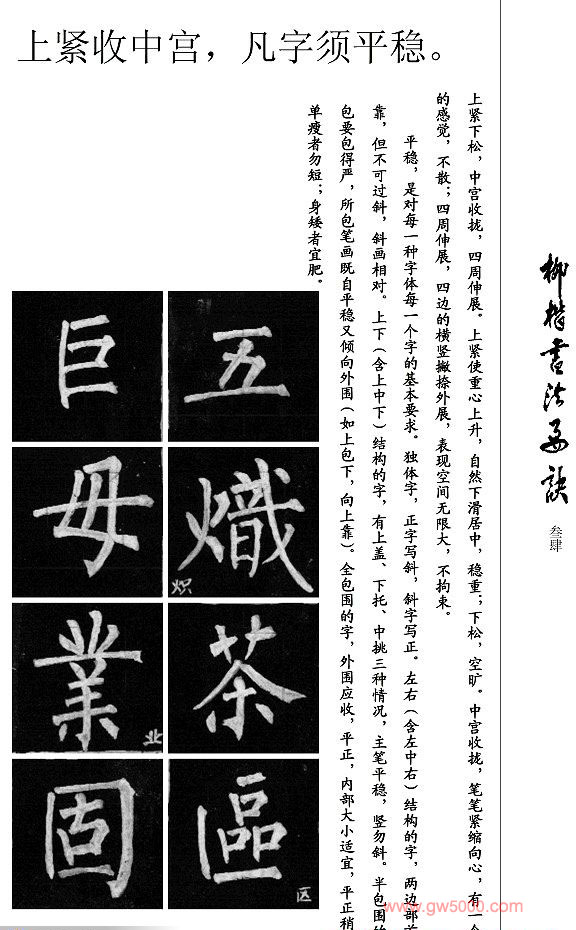 上紧收中宫，凡字须平稳。
柳楷書法要訣
叁肆
上紧下松，中宫收拢，四周伸展。上紧使重心上升，自然下滑居中，稳重；下松，空旷。中宫收拢，笔笔紧缩向心，有一个
的感觉，不散；四周伸展，四边的横竖撇捺外展，表现空间无限大，不拘束。
平稳，是对每一种字体每一个字的基本要求。独体字，正字写斜，斜字写正。左右（含左中右）结构的字，两边部首
靠，但不可过斜，斜画相对。上下（含上中下）结构的字，有上盖、下托、中挑三种情况，主笔平稳，竖勿斜。半包围的
包要包得严，所包笔画既自平稳又倾向外围（如上包下，向上靠）。全包围的字，外围应收，平正，内部大小适宜，平正稍
单瘦者勿短；身矮者宜肥。
五
巨
熾
炽
毋
茶
業
业
區
区
固
www.gw5000.com